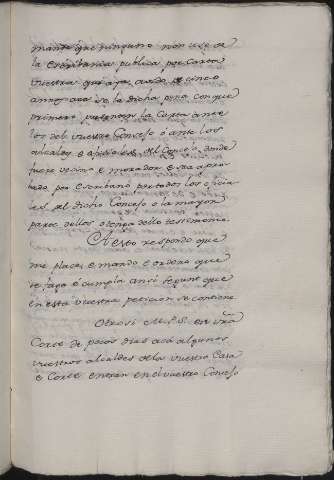 mande que ninguno non use de
la escribania publica por carta
vuestra que aya cinco
annos aca so la dicha pena con que
primero presenten la carta ante
los del vuestro Consejo o ante los
alcaldes e oficiales del Consejo donde
fuere vecino e morador e sea apro
bado por escribano por todos los oficia
es del dicho Consejo o la mayor
parte dellos o tenga dello testimonio
A esto respondo que
me place e mando e ordeno que
se faga e cumpla ansi segunt que
en esta vuestra peticion se contiene
Otrosi M. P. S. en vrā
Corte de pocos dias aca algunos
vuestros alcaldes de la vuestra Casa
e Corte entran en el vuestro Consejo